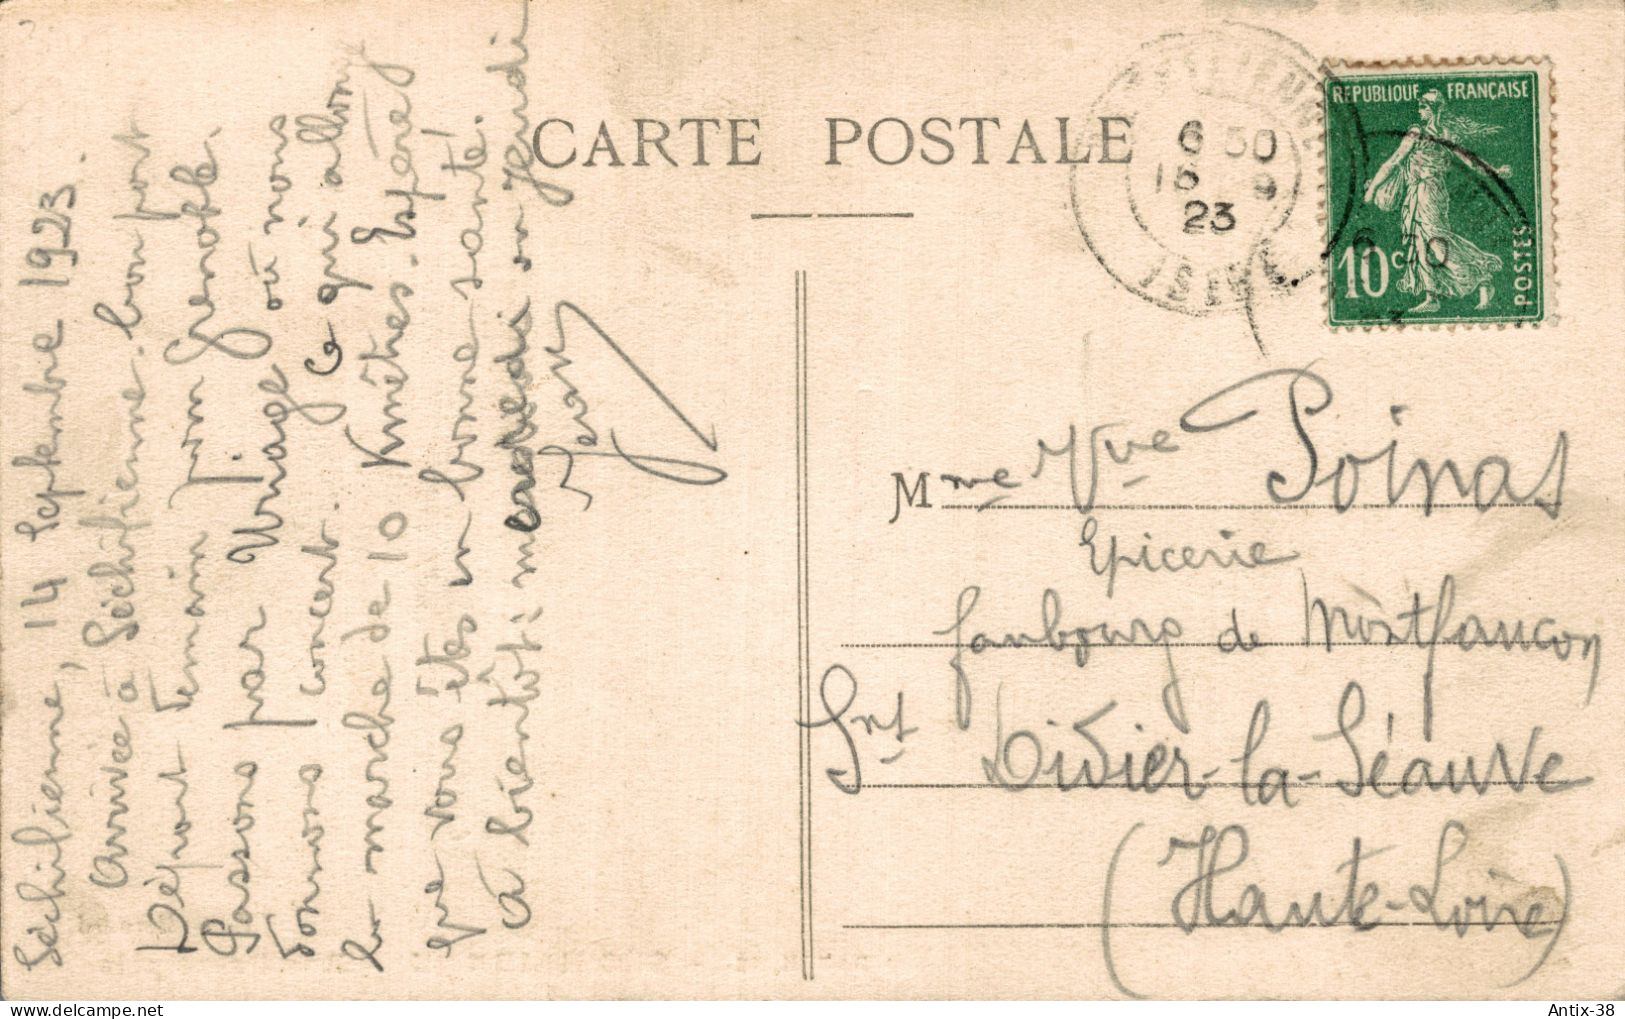 CARTE POSTALE
Séchilienne, 14 Septembre 1923.
Arrivée à Séchilienne. bon port
Départ demain pour Grenoble.
Passons par Uriage où nous
donnons concert. Ce qui allonge
la marche de 10 Kmètres. Espérez
que vous êtes en bonne santé.
à bientôt: mercredi ou Jeudi
SÉCHILIENNE
6 30
15 9
23
ISÈRE
RÉPUBLIQUE FRANÇAISE
10 c
POSTES
6 30
Mme Vve Poinas
Epicerie
faubourg de Montfaucon
Snt Didier-la-Séauve
(Haute-Loire)
Antix-38